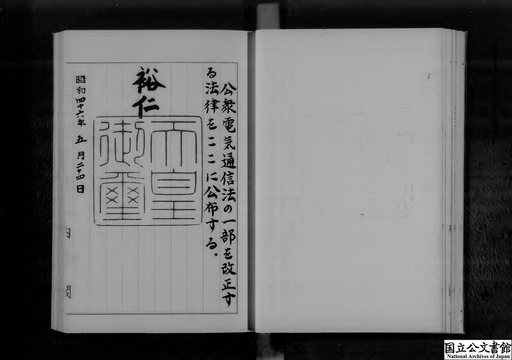 公衆電気通信法の一部を改正す
る法律をここに公布する。
裕仁
天皇
御璽
昭和四十六年五月二十四日
国立公文書館
National Archives of Japan